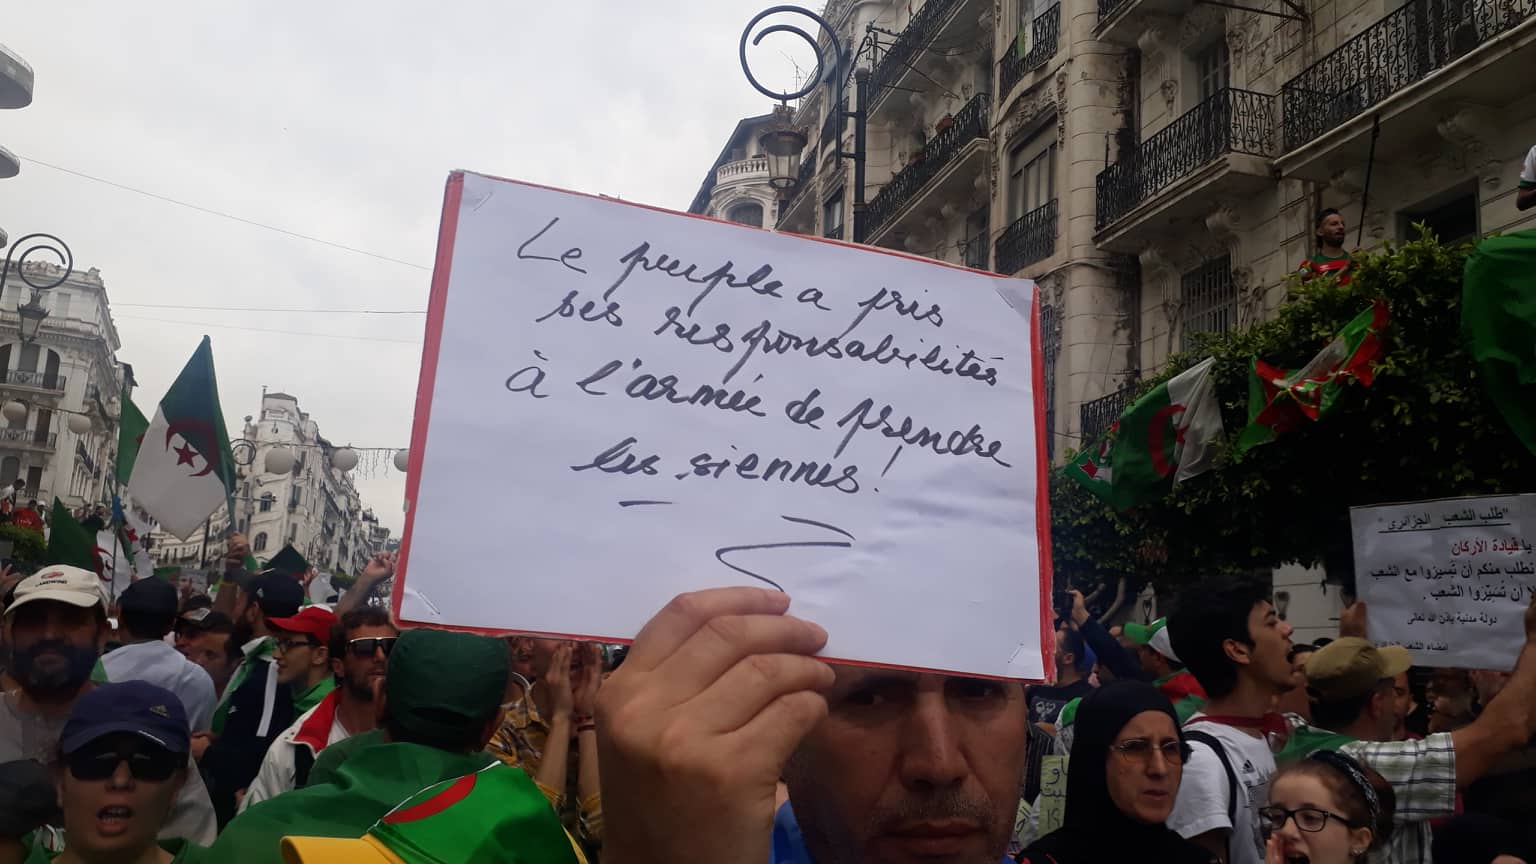 Le peuple a pris
ses responsabilités
à l'armée de prendre
les siennes !
"طلب الشعب الجزائري"
يا قيادة الأركان
نطلب منكم أن تسيروا مع الشعب
لا أن تُسَيّروا الشعب .
دولة مدنية بإذن الله تعالى
إمضاء الشعب